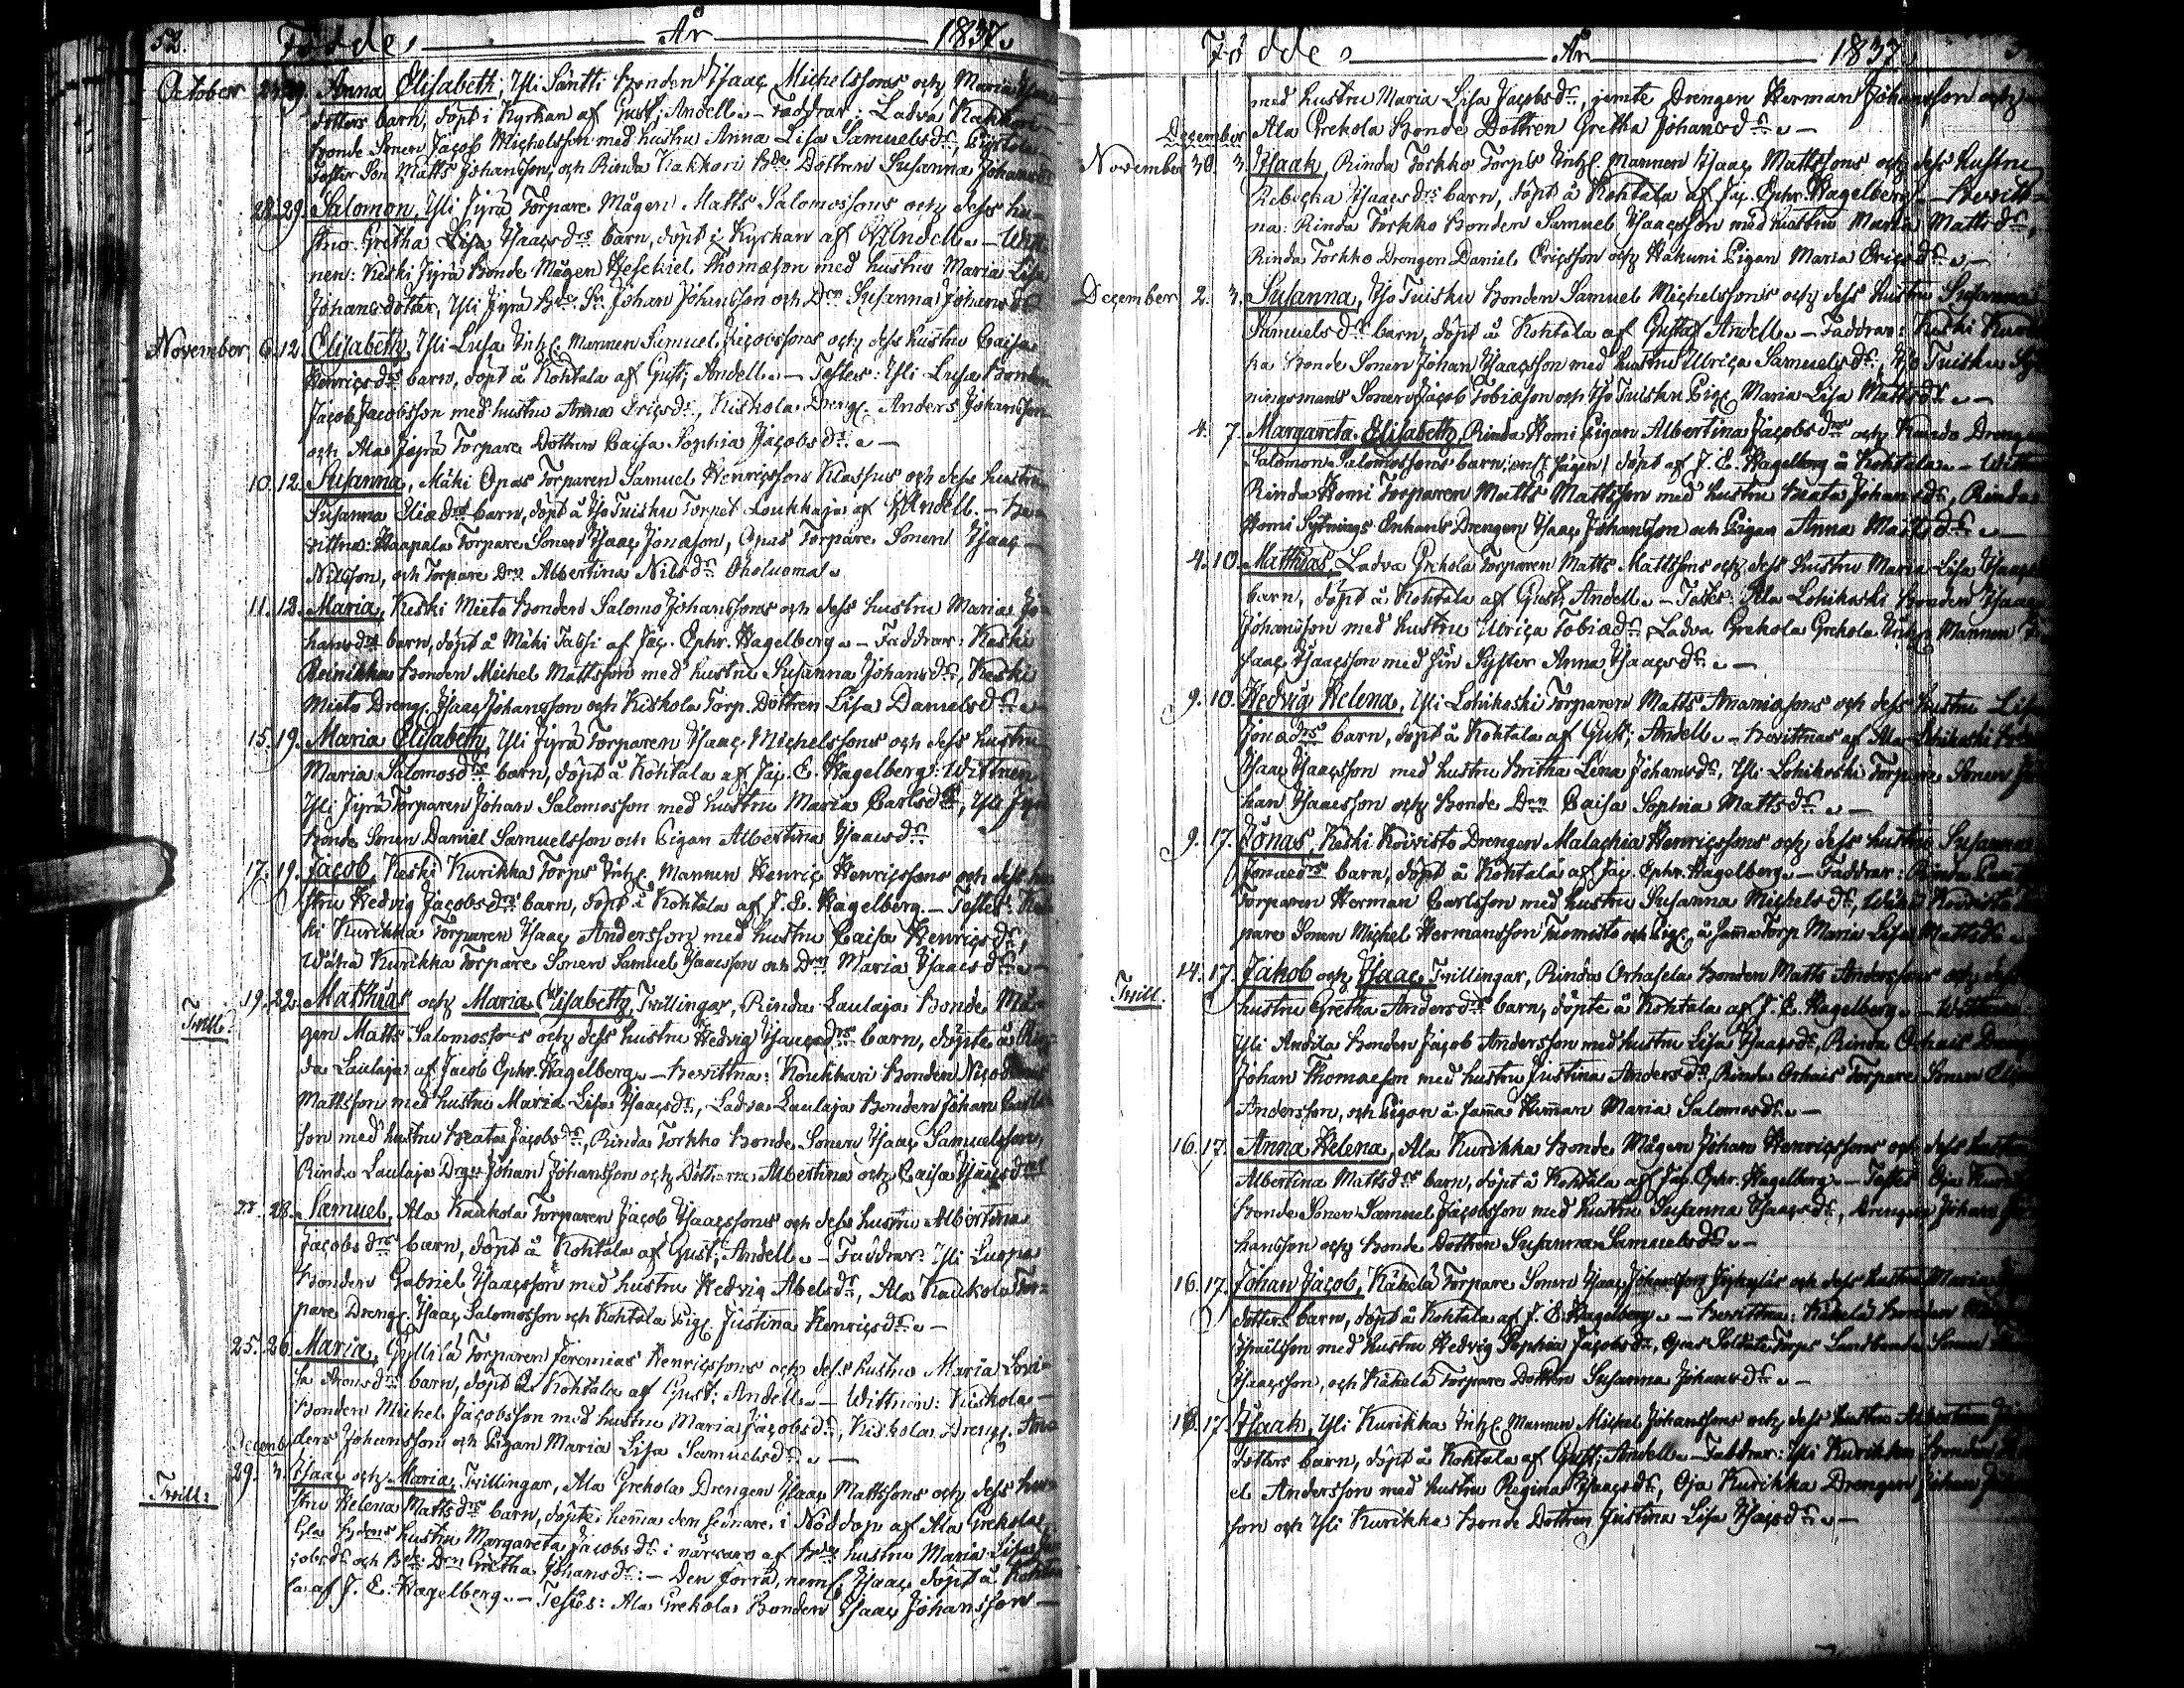 52. Födde, År 1837.
October 27. 29. Anna Elisabeth, Yli Säntti bonden Isaac Michelssons och Maria
dotters barn, döpt i Kyrkan af Gust; Andell. — Faddrar: Ladva Kakkori
bonde Sonen Jacob Michelsson med hustru Anna Lisa Samuelsdr,
foster Son Matts Johansson, och Rinda Kakkori Bde Dottren Susanna Johansdr
28. 29. Salomon, Yli Jyrä Torpare Mågen Matts Salomossons och dess hu-
stru Gretha Lisa Isaacsdrs barn, döpt i Kyrkan af Andell. — Witt-
nen: Keski Jyrä Bonde Mågen Heschiel Thomæson med hustru Maria Lisa
Johansdotter, Yli Jyrä Bde Sn Johan Johansson och Drn Susanna Johansdr
November 6. 12. Elisabeth, Yli Lusa Inhs. Mannen Samuel Jacobssons och dess hustru Caisa
Henricsdrs barn, döpt å Kohtala af Gust; Andell. — Testes: Yli Lusa Bonden
Jacob Jacobsson med hustru Anna Ericsdr, Kiskola Dreng. Anders Johansson
och Ala Jyrä Torpare Dottren Caisa Sophia Jacobsdr. —
10. 12. Susanna, Mäki Opas Torparen Samuel Henricssons Klasfus och dess hustru
Susanna Eliædrs barn, döpt å Iso Tuisku Torpet Loukkaja af G Andell. — Be-
vittna: Haapala Torpare Sonen Isaac Jonæson, Opas Torpare Sonen Isaac
Nilsson, och Torpare Drn Albertina Nilsdr Oholuoma.
11. 12. Maria, Keski Mieto Bonden Salomo Johanssons och dess hustru Maria Jo-
hansdrs barn, döpt å Mäki Tassi af Jac. Ephr. Hagelberg. — Faddrar: Keski
Reinikka Bonden Michel Mattsson med hustru Susanna Johansdr, Keski
Mieto Dreng. Isaac Johansson och Kiskola Torp. Dottren Lisa Danielsdr. —
15. 19. Maria Elisabeth, Yli Jyrä Torparen Isaac Michelssons och dess hustru
Maria Salomosdrs barn, döpt å Kohtala af Jac. E. Hagelberg: Wittnen
Yli Jyrä Torparen Johan Salomosson med hustru Maria Carlsdr, Yli Jyrä
Bonde Sonen Daniel Samuelsson och Pigan Albertina Isaacsdr
17. 19. Jacob, Keski Kurikka Torps Inhs. Mannen Henric Henricssons och dess hu-
stru Hedvig Jacobsdrs barn, döpt å Kohtala af J. E. Hagelberg. — Testes: Kes-
ki Kurikka Torparen Isaac Andersson med hustru Caisa Henricsdr,
Wähä Kurikka Torpare Sonen Samuel Isaacsson och Drn Maria Isaacsdr. —
Twill: 19. 22. Matthias och Maria Elisabeth, Twillingar, Rinda Laulaja Bonde Må-
gen Matts Salomossons och dess hustru Hedvig Isaacsdrs barn, döpte å Rin-
da Laulaja af Jacob Ephr. Hagelberg. — Bevittna: Koukkari Bonden Nicodemus
Mattsson med hustru Maria Lisa Isaacsdr, Ladva Laulaja Bonden Johan Carls-
son med hustru Beata Jacobsdr, Rinda Torkko Bonde Sonen Isaac Samuelsson,
Rinda Laulaja Drgn Johan Johansson och Döttrarna Albertina och Caisa Isaacsdrar
28. Samuel, Ala Kaukola Torparen Jacob Isaacssons och dess hustru Albertina
Jacobsdrs barn, döpt å Kohtala af Gust; Andell. — Faddrar: Yli Luopa
Bonden Gabriel Isaacsson med hustru Hedvig Abelsdr, Ala Kaukola Tor-
pare Dreng. Isaac Salomosson och Kohtala Pig. Justina Henricsdr. —
25. 26. Maria, Gyllilä Torparen Jeremias Henricssons och dess hustru Maria Lovi-
sa Aronsdrs barn, döpt å Kohtala af Gust; Andell. — Wittnen: Kiskola
Bonden Michel Jacobsson med hustru Maria Jacobsdr, Kiskola Dreng. An-
ders Johansson och Pigan Maria Lisa Samuelsdr. —
Decemb.
Twill: 29. 3. Isaac och Maria, Twillingar, Ala Grekola Drengen Isaac Mattssons och dess hu-
stru Helena Mattsdrs barn, döpte: hemma den sednare i Nöddop af Ala Grekola
hustru Margareta Jacobsdr i närvaro af Bdes hustru Maria Lisa Ja-
cobsdr och Bde Drn Gretha Johansdr: — Den förra, neml; Isaac döpt å Kohta-
la af J. E. Hagelberg. — Testes: Ala Grekola Bonden Isaac Johansson
Födde, År 1837.
med hustru Maria Lisa Jacobsdr, jemte Drengen Herman Johansson och
Ala Grekola Bonde Dottren Gretha Johansdr. —
December
November 30. 3. Isaak, Rinda Torkko Torps Inhs. Mannen Isaac Mattssons och dess hustru
Rebecka Isaacsdrs barn, döpt å Kohtala af Jac. Ephr. Hagelberg. — Bevitt-
na: Rinda Torkko Bonden Samuel Isaacsson med hustru Maria Mattsdr,
Rinda Torkko Drengen Daniel Ericsson och Hakuni Pigan Maria Ericsdr. —
December 2. 3. Susanna, Iso Tuisku Bonden Samuel Michelssons och dess hustru Susanna
Samuelsdrs barn, döpt å Kohtala af Gustaf Andell. — Faddrar: Keski Kurik-
ka Bonde Sonen Johan Isaacsson med hustru Ulrica Samuelsdr, Iso Tuisku Syt-
ningsmans Sonen Jacob Tobiæson och Iso Tuisku Pig. Maria Lisa Mattsdr. —
4. 7. Margareta Elisabeth, Rinda Homi Pigan Albertina Jacobsdrs och Kando Drengen
Salomon Salomossons barn, döpt af J. E. Hagelberg å Kohtala. — Wittnen
Rinda Homi Torparen Matts Mattsson med hustru Beata Johansdr, Rinda
Homi Sytnings Enkans Drengen Isaac Johansson och Pigan Anna Mattsdr. —
4. 10. Matthias, Ladva Grekola Torparen Matts Mattssons och dess hustru Maria Lisa Isaacsdrs
barn, döpt å Kohtala af Gust; Andell. — Testes: Ala Lohikoski Bonden Isaac
Johansson med hustru Ulrica Tobiædr, Ladva Grekola Grekola Inhs. Mannen I-
saac Isaacsson med sin Syster Anna Isaacsdr. —
9. 10. Hedvig Helena, Yli Lohikoski Torparen Matts Ananiæsons och dess hustru Lisa
Jonædrs barn, döpt å Kohtala af Gust; Andell. — Bevittnas af Ala Lohikoski
Isaac Isaacsson med hustru Britha Lena Johansdr, Yli Lohikoski Torpare Sonen Jo-
han Isaacsson och Bonde Drn Caisa Sophia Mattsdr. —
9. 17. Jonas, Keski Koivisto Drengen Malachia Henricssons och dess hustru Susanna
Jonædrs barn, döpt å Kohtala af Jac. Ephr. Hagelberg. — Faddrar: Rinda
Torparen Herman Carlsson med hustru Susanna Michelsdr, Wähä Koivisto Tor-
pare Sonen Michel Hermansson Tuomisto och Pig. å samma Torp Maria Lisa Mattsdr.
Twill: 14. 17. Jakob och Isaac, Twillingar, Rinda Orhasela Bonden Matts Anderssons och dess
hustru Gretha Andersdrs barn, döpte å Kohtala af J. E. Hagelberg. — Wittnen
Yli Andila Bonden Jacob Andersson med hustru Lisa Isaacsdr, Rinda Orhais Drengen
Johan Thomæson med hustru Justina Andersdr, Rinda Orhais Torpare Sonen
Andersson, och Pigan å samma Hemman Maria Salomosdr. —
16. 17. Anna Helena, Ala Kurikka Bonde Mågen Johan Henricssons och dess hustru
Albertina Mattsdrs barn, döpt å Kohtala af Jac. Ephr. Hagelberg. — Testes: Oja Kurikka
Bonde Sonen Samuel Jacobsson med hustru Susanna Isaacsdr, Drengen Johan Jo-
hansson och Bonde Dottren Susanna Samuelsdr. —
16. 17. Johan Jacob, Käkelä Torpare Sonen Isaac Johansson och dess hustru Maria
dotters barn, döpt å Kohtala af J. E. Hagelberg. — Bevittna: Käkelä Bonden
Israilsson med hustru Hedvig Sophia Jacobsdr, Opas Soldate Torps Landbonde Sonen
Isaacsson, och Käkelä Torpare Dottren Susanna Johansdr. —
17. Isaak, Yli Kurikka Inhs. Mannen Michel Johanssons och dess hustru Albertina
dotters barn, döpt å Kohtala af Gust; Andell. — Faddrar: Yli Kurikka Bonden
el Andersson med hustru Regina Isaacsdr, Oja Kurikka Drengen Johan
son och Yli Kurikka Bonde Dottren Justina Lisa Isacsdr. —